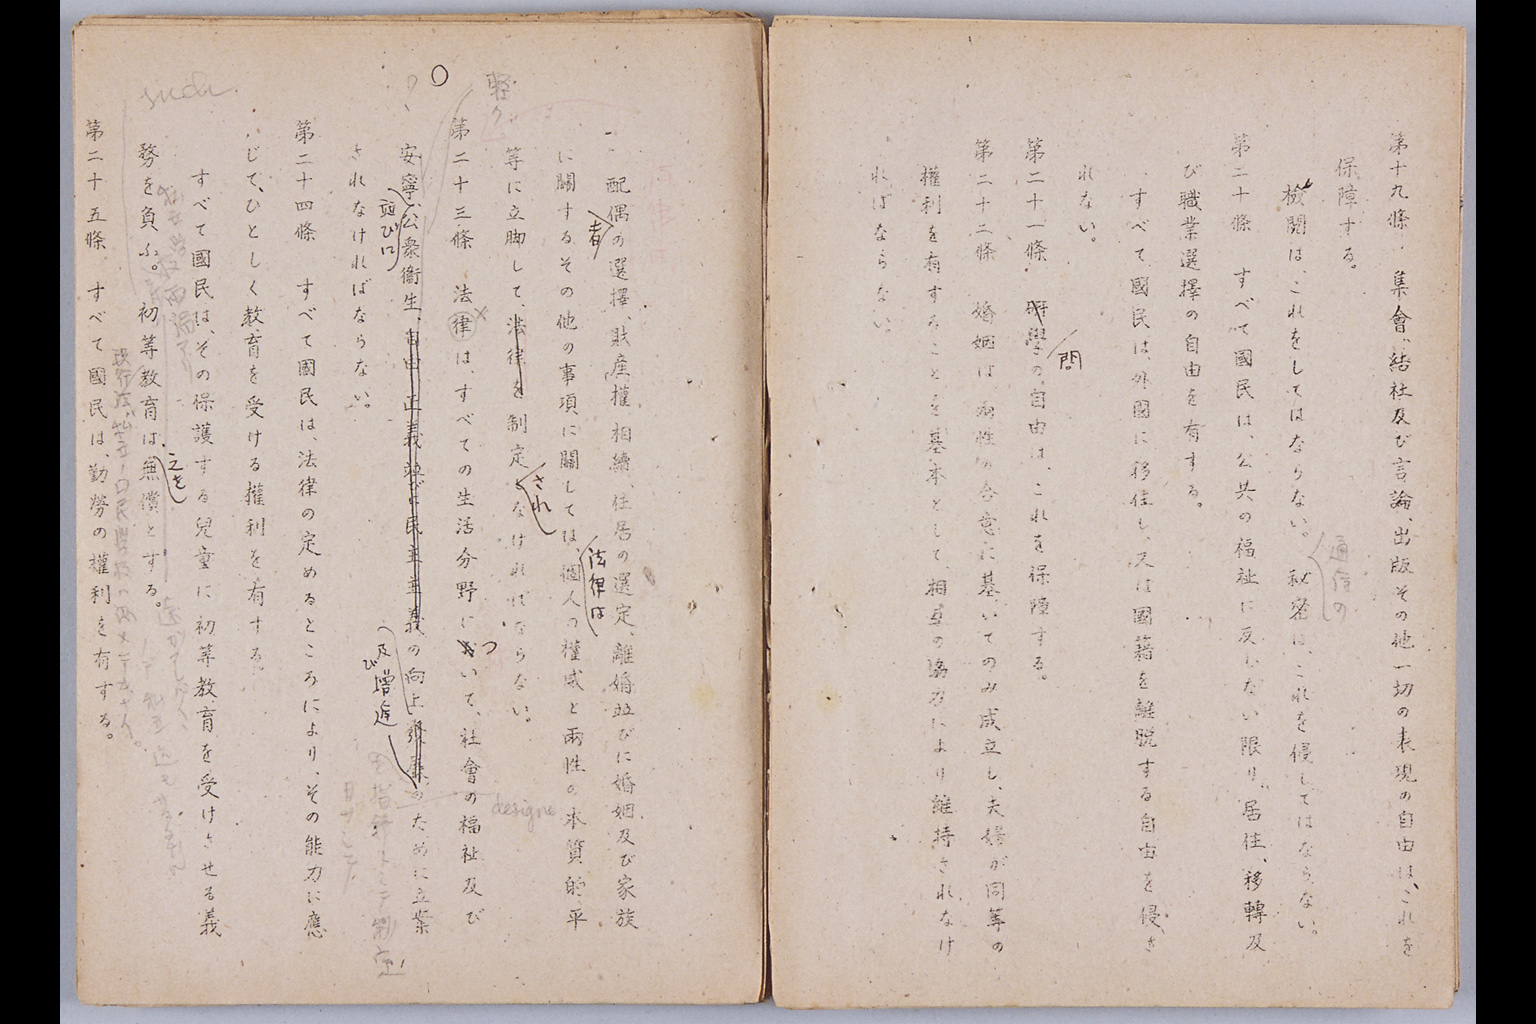 第十九條　集會、結社及び言論、出版その他一切の表現の自由は、これを
保障する。
檢閲は、これをしてはならない。秘密は、これを侵してはならない。
通信の
第二十條　すべて國民は、公共の福祉に反しない限り、居住、移轉及
び職業選擇の自由を有する。
すべて國民は、外國に移住し、又は國籍を離脱する自由を侵さ
れない。
第二十一條　學の自由は、これを保障する。
問
第二十二條　婚姻は、兩性の合意に基いてのみ成立し、夫婦が同等の
權利を有することを基本として、相互の協力により維持されなけ
ればならない。
配偶の選擇、財産權、相續、住居の選定、離婚並びに婚姻及び家族
者
に關するその他の事項に關しては、個人の權威と兩性の本質的平
法律は
等に立脚して、法律を制定しなければならない。
され
輕ク
第二十三條　法律は、すべての生活分野において、社會の福祉及び
つ
安寧、公衆衞生、自由、正義並びに民主主義の向上發展のために立案
並びに
及び增進
designe
されなければならない。
第二十四條　すべて國民は、法律の定めるところにより、その能力に應
じて、ひとしく教育を受ける權利を有する。
すべて國民は、その保護する兒童に初等教育を受けさせる義
務を負ふ。初等教育は、無償とする。
之を
such
第二十五條　すべて國民は、勤勞の權利を有する。